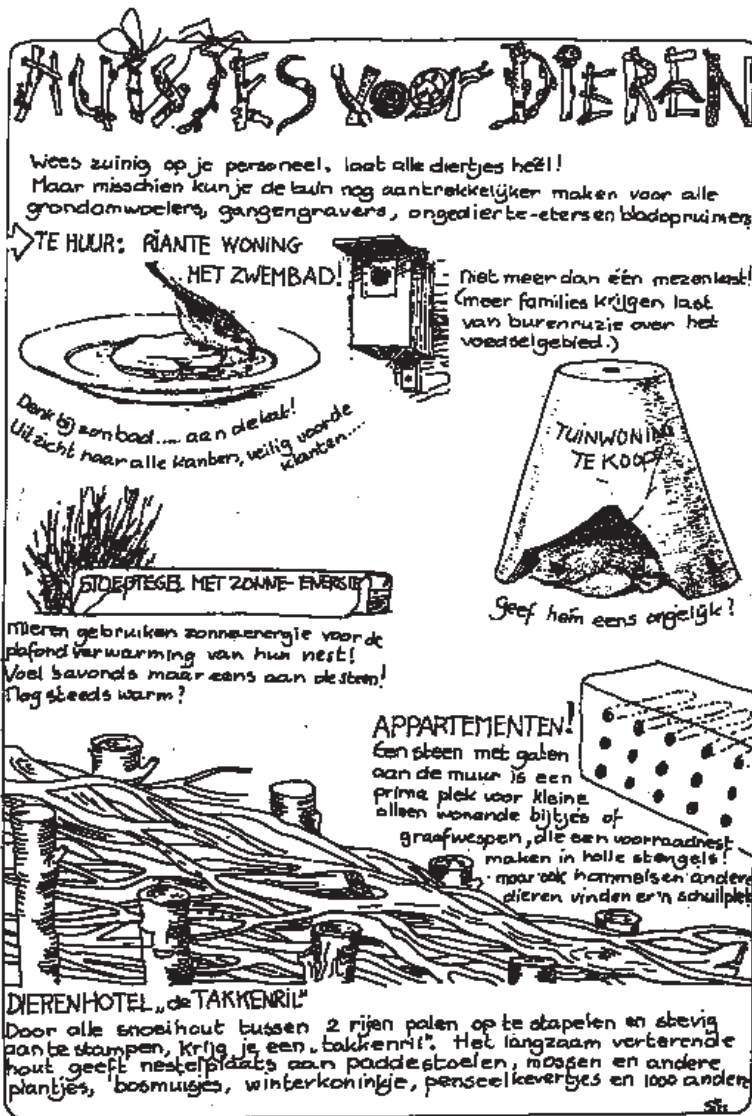 HUISJES voor DIEREN
Wees zuinig op je personeel, laat alle diertjes heel!
Maar misschien kun je de tuin nog aantrekkelijker maken voor alle
grondomwoelers, gangengravers, ongedierte-eters en bladopruimers
TE HUUR: RIANTE WONING
MET ZWEMBAD!
Niet meer dan één mezenkast!
(meer families krijgen last
van burenruzie over het
voedselgebied.)
Denk bij een bad..... aan de kat!
Uitzicht naar alle kanten, veilig voor de
klanten....
TUINWONING
TE KOOP
Geef hem eens ongelijk?
STOEPTEGEL MET ZONNE-ENERGIE
Mieren gebruiken zonneenergie voor de
plafondverwarming van hun nest!
Voel 's avonds maar eens aan de steen!
Nog steeds warm?
APPARTEMENTEN!
Een steen met gaten
aan de muur is een
prima plek voor kleine
alleen wonende bijtjes of
graafwespen, die een voorraadnest
maken in holle stengels!
maar ook hommels en andere
dieren vinden er 'n schuilplek
DIERENHOTEL „de TAKKENRIL"
Door alle snoeihout tussen 2 rijen palen op te stapelen en stevig
aan te stampen, krijg je een „takkenril". Het langzaam verterende
hout geeft nestelplaats aan paddestoelen, mossen en andere
plantjes, bosmuisjes, winterkoninkje, penseelkevertjes en 1000 andere